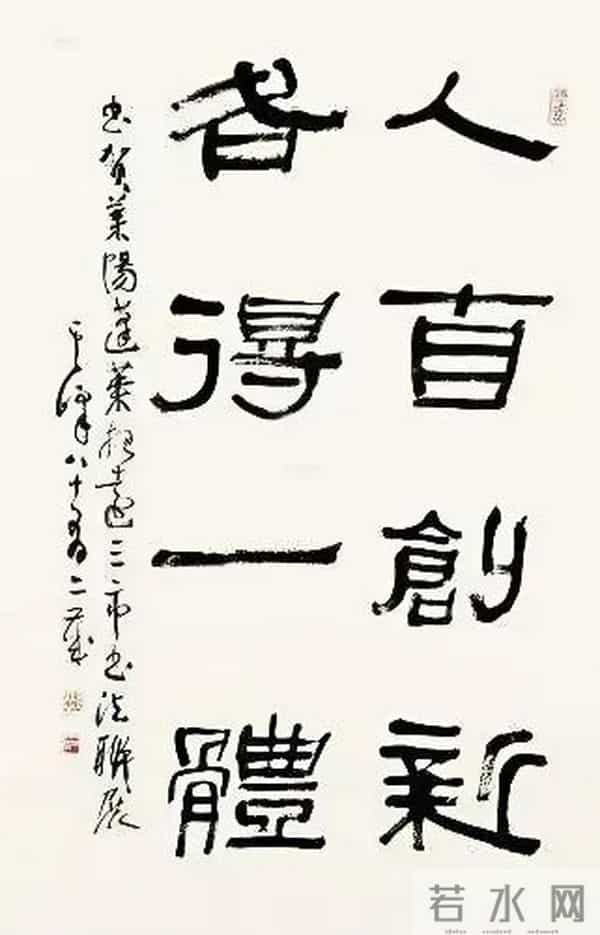 人自創新
各得一體
書賀萊陽蓬萊招遠三市書法聯展
八十有二歲
若水网